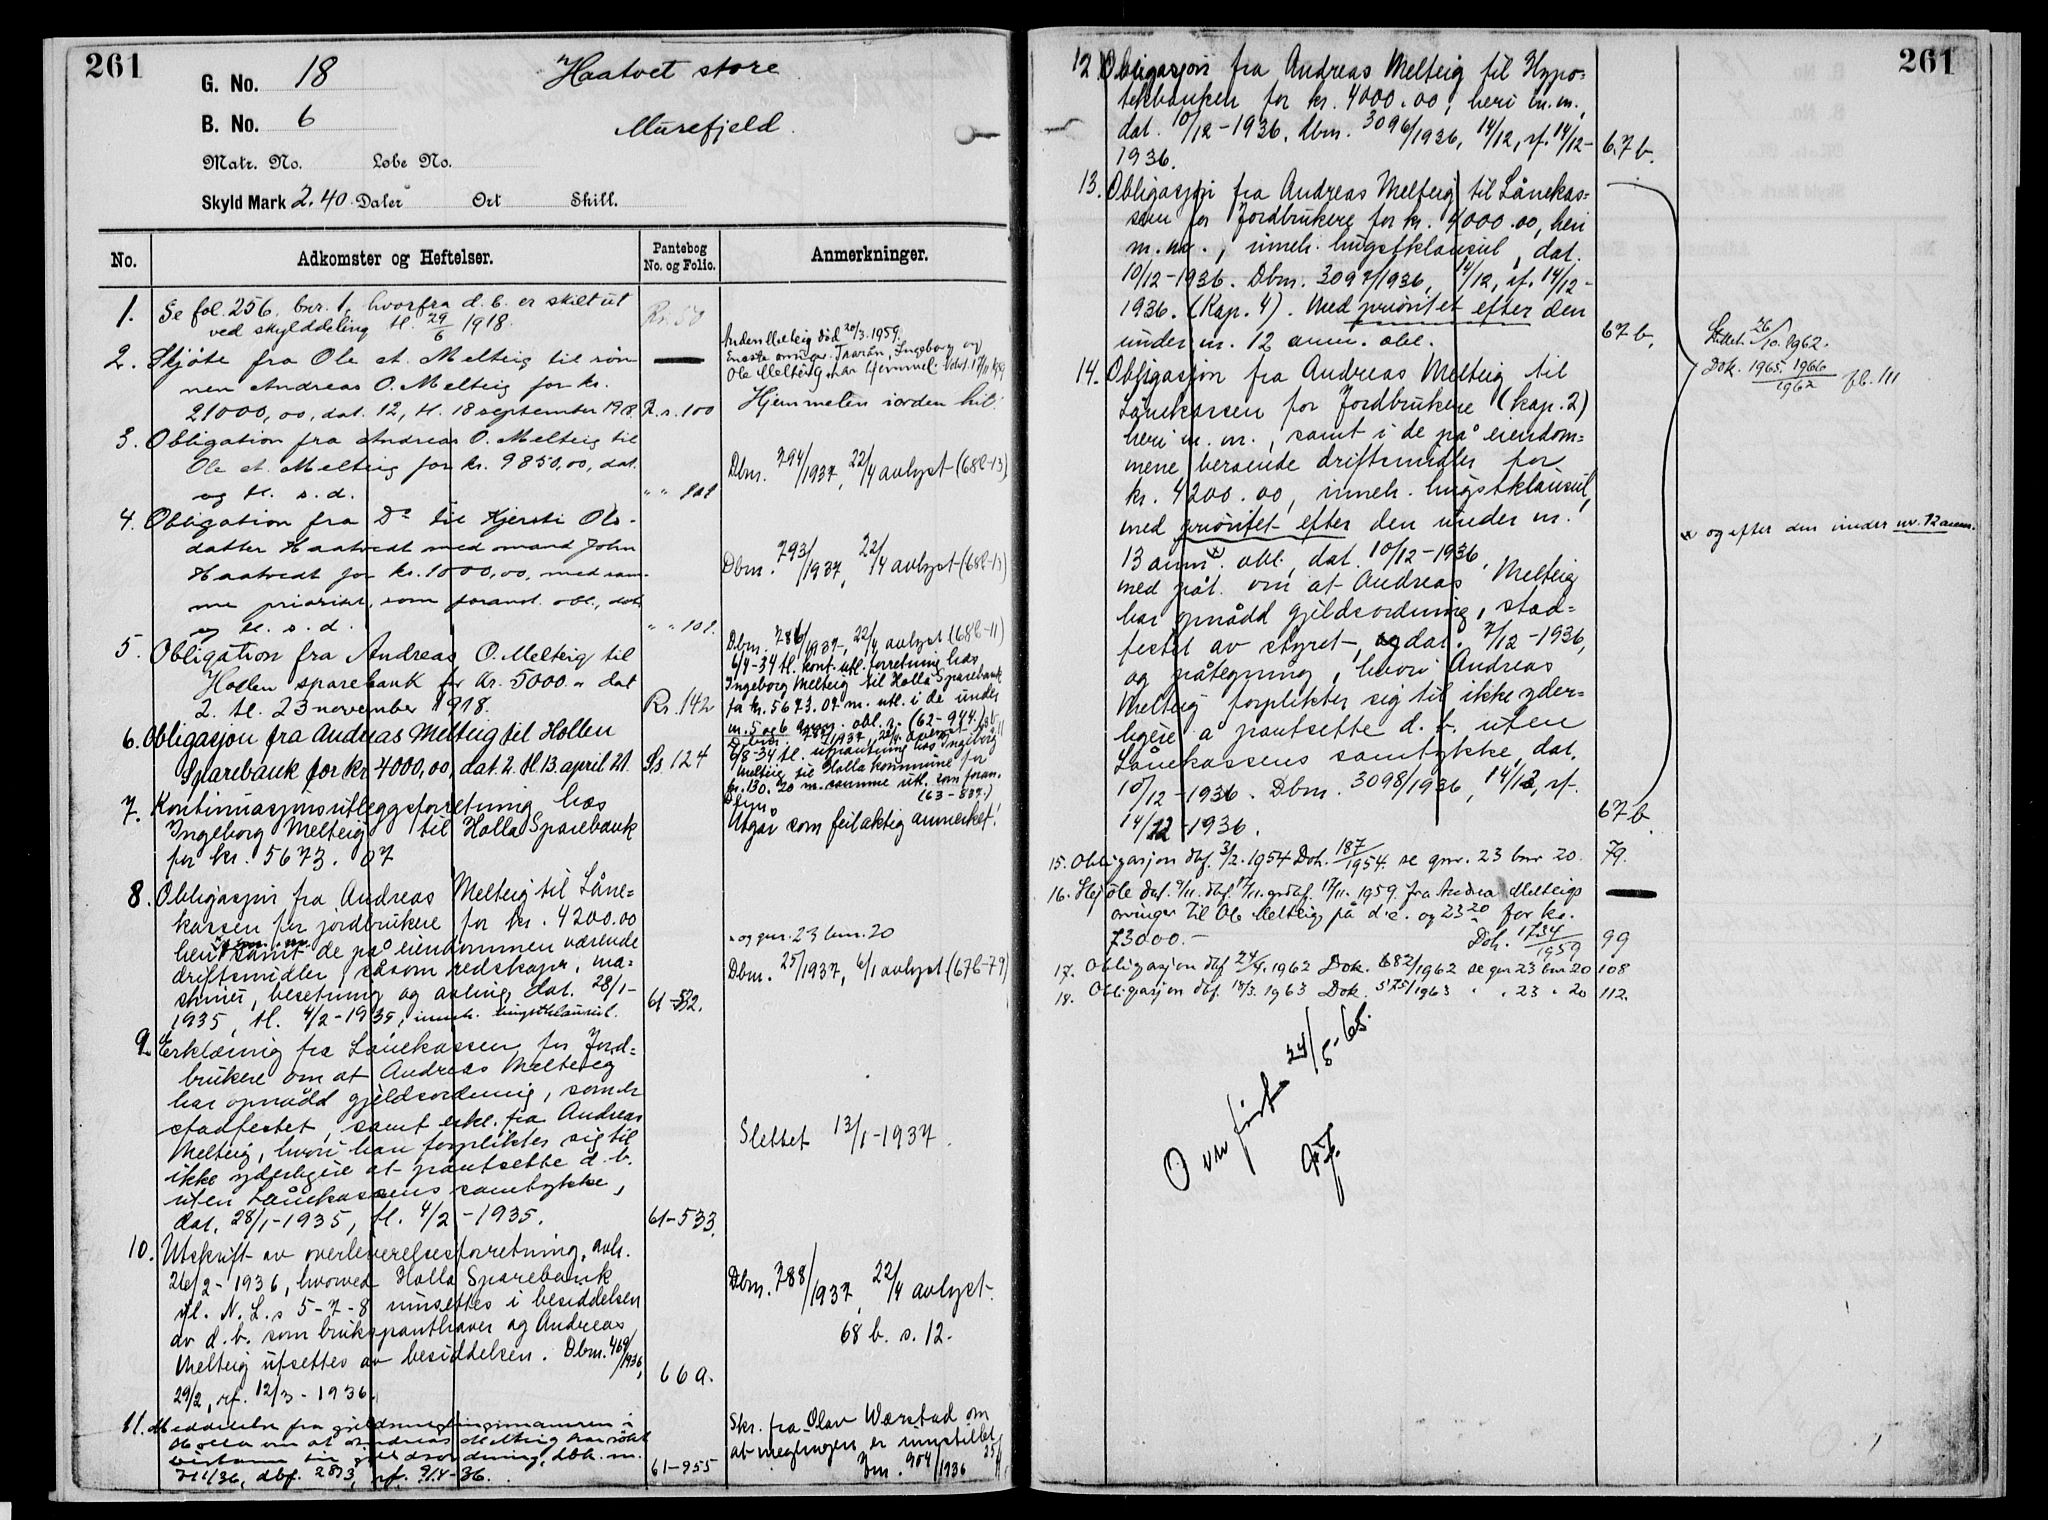 261
G. No. 18
Haatvet store
B. No. 6
Murefjeld.
Matr. No. Løbe No.
Skyld Mark 2.40 Daler Ort Skill.
No.
Adkomster og Heftelser.
Pantebog No. og Folio.
Anmerkninger.
1. Se fol. 256, bnr. 1, hvorfra d. b. er skilt ut
ved skylddeling tl. 29/6 1918.
2. Skjøte fra Ole A. Melteig til søn-
nen Andreas O. Melteig for kr.
21000,00, dat. 12, tl. 18 september 1918. R.r. 100
Anmerkninger: død 20/3 1959.
Hjemmelen i orden hit.
3. Obligation fra Andreas O. Melteig til
Ole A. Melteig for kr. 9850,00, dat.
og tl. s. d. " " 101
Dbnr. 794/1937, 22/4 avlyst (68b-13)
4. Obligation fra Do til Kjersti Ols-
datter Haatvedt med mand John
Haatvedt for kr. 1000,00, med sam-
me prioritet som forannt. obl., dat.
og tl. s. d. " " 101.
Dbnr. 793/1937, 22/4 avlyst (68b-13)
5. Obligation fra Andreas O. Melteig til
Hollen sparebank for kr. 5000.- dat
2. tl. 23 november 1918. Rr. 142
Dbnr. 786/1937, 22/4 avlyst (68b-11)
6/4-34 tl. kont. utl. forretning hos
Ingeborg Melteig til Holla Sparebank
for kr. 5673.07 m. utl. i de under
nr. 5 og 6 anm. obl.
6. Obligasjon fra Andreas Melteig til Hollen
Sparebank for kr 4000,00, dat. 2. tl 13. april 21. Ss 124
Melteig til Holla kommune for
kr. 130.20 m. samme utl. som foran.
7. Kontinuasjonsutleggsforretning hos
Ingeborg Melteig til Holla Sparebank
for kr. 5673.07
Utgår som feilaktig anmerket!
8. Obligasjon fra Andreas Melteig til Låne-
kassen for jordbrukere for kr. 4200.00
heri samt de på eiendommen værende
driftsmidler, såsom redskaper, ma-
skiner, besetning og avling, dat. 28/1-
1935, tl. 4/2-1935, inneh. hugstklausul. 61-532.
x og gnr. 23 bnr. 20
Dbnr. 25/1937, 6/1 avlyst (67b-79)
9. Erklæring fra Lånekassen for Jord-
brukere om at Andreas Melteig
har opnådd gjeldsordning, som er
stadfestet, samt erkl. fra Andreas
Melteig, hvori han forplikter sig til
ikke yderligere at pantsette d. b.
uten Lånekassens samtykke,
dat. 28/1-1935, tl. 4/2-1935. 61-533.
Slettet 13/1-1937.
10. Utskrift av overleverelsesforretning, avh.
26/2-1936, hvorved Holla Sparebank
ifl. N. L.s 5-7-8 innsettes i besiddelsen
av d. b. som brukspanthaver og Andreas
Melteig utsettes av besiddelsen. Dbnr. 469/1936,
29/2, rf. 12/3-1936. 66a.
Dbnr. 788/1937, 22/4 avlyst.
68 b. s. 12.
11. Meddelelse fra gjeldsmeglingsnemnden i
Holla om at Andreas Melteig har søkt
711/36, dbf. 28/3, rf. 9/4-36. 61-955
Skr. fra Olav Værstad om
at meglingen er innstillet
Jnr. 904/1936
261
12. Obligasjon fra Andreas Melteig til Hypo-
tekbanken for kr. 4000.00, heri m. m.,
dat. 10/12-1936. Dbnr. 3096/1936, 14/12, rf. 14/12-
1936. 67 b.
13. Obligasjon fra Andreas Melteig til Lånekas-
sen for Jordbrukere for kr. 4000.00, heri
m. m., inneh. hugstklausul, dat.
10/12-1936. Dbnr. 3097/1936, 14/12, rf. 14/12-
1936. (Kap. 4). Med prioritet efter den
under nr. 12 anm. obl. 67 b.
14. Obligasjon fra Andreas Melteig til
Lånekassen for Jordbrukere (kap. 2)
heri m. m., samt i de på eiendom-
mene beroende driftsmidler for
kr. 4200.00, inneh. hugstklausul,
med prioritet efter den under nr.
13 anm.x obl., dat. 10/12-1936,
med påt. om at Andreas Melteig
har opnådd gjeldsordning, stad-
festet av styret, dat. 7/12-1936,
og påtegning, hvori Andreas
Melteig forplikter sig til ikke yder-
ligere å pantsette d. b. uten
Lånekassens samtykke, dat.
10/12-1936. Dbnr. 3098/1936, 14/12, rf.
14/12-1936. 67 b
Slettet 26/10.1962.
Dok. 1965. 1966/1962 pb. 111
x og efter den under nr. 12 anm.
15. Obligasjon dbf. 3/2. 1954 Dok. 187/1954. se gnr. 23 bnr 20. 79.
16. Skjøte dat. 9/11. dbf. 17/11. grdbf. 17/11. 1959 fra Andreas Melteigs
arvinger til Ole Melteig på d.e. og 23 20 for kr.
73000.- Dok. 1734/1959 99
17. Obligasjon dbf 24/4. 1962 Dok. 682/1962 se gnr 23 bnr 20 108
18. Obligasjon dbf. 18/3. 1963 Dok. 575/1963 " " 23 " 20 112.
Overført 24/8-65.